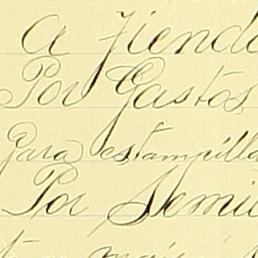 A Tienda
Por Gastos
Para estampilla
Por Semi